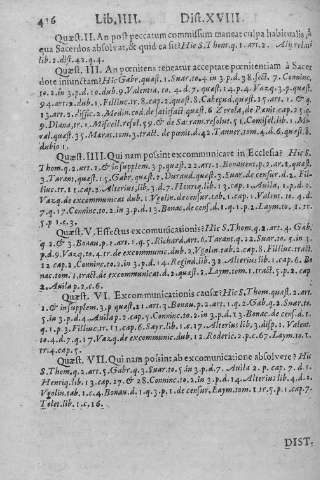 416 Lib.IIII. Dist.XVIII.
Quæst. II. An post peccatum commissum maneat culpa habitualis, à
qua Sacerdos absolvat, & quid ea sit? Hic S.Thom.q.1.art.2.
lib.2.dist.42.q.4.
Quæst. III. An pœnitens teneatur acceptare pœnitentiam à Sacer
dote iniunctam? Hic Gabr.quæst.1.Suar.to.4.in 3.p.d.38.sect.7.Coninc.
to.2.in 3.p.d.10.dub.9.Valentia.to.4.d.7.quæst.14.p.4.Vazq.3.p.quæst.
94.art.2.dub.1.Filliuc.tr.8.cap.2.quæst.8.
13.art.2.
9.Diana,
dubio 1.
Quæst. IIII. Qui nam possint excommunicare in Ecclesia? Hic S.
Thom.q.2.art.1.& insupplem.3.p.quæst.22.art.1.Bonavent.p.2.ar.1.quæst.
3.Taran.quæst.15.Gabr.quæst.2.Durand.quæst.3.Suar.de censur.d.2.Fil-
liuc.tr.11.cap.2.Alterius,lib.3.d.7.Henriq.lib.13.cap.1.Auila,1.p.d.2.
Vazq.de excommunicat.dub.1.Vgolin.de censur.tab.1.cap.1.Valent.to.4.d.
7.q.17.Coninc.to.2.in 3.p.d.13.Bonac.de cens.d.1.q.1.p.2.Laym.to.1.tr.
5.p.1.c.3.
Quæst. V. Effectus excommunicationis? Hic S.Thom.q.2.art.4.Gabr.
q.2.& 3.Bonau.p.2.art.1.q.5.Richard.art.6.Taran.q.22.Suar.to.5.in 3.
p.d.9.Vazq.to.4.tr.de excommunic.dub.2.Vgolin.tab.2.cap.8.Filliuc.tract.
12.cap.2.Coninc.to.2.in 3.p.d.14.Regind.lib.32.Alterius lib.1.cap.6.Bo
nac.tom.1.tract.de excommunicat.d.2.quæst.2.Laym.tom.1.tract.5.p.2.cap.
2.Auila p.2.c.6.
Quæst. VI. Excommunicationis causæ? Hic S.Thom.quæst.2.art.
2.& insupplem.3.p.quæst.21.art.3.Bonau.p.2.art.1.q.2.Gab.q.2.Suar.to.
5.in 3.p.d.4.Auila p.2.cap.5.Coninc.to.2.in 3.p.d.13.Bonac.de cens.d.1.
q.1.p.3.Filliuc.tr.11.cap.6.Sayr.lib.1.c.17.Alterius lib.3.disp.1.Valent.
to.4.d.7.q.17.Vazq.de excommunic.dub.12.Roderic.2.p.c.67.Laym.to.1.
tr.4.cap.5.
Quæst. VII. Qui nam possint ab excomunicatione absolvere? Hic
S.Thom.q.2.art.5.Gabr.q.3.Suar.to.5.in 3.p.d.7.Auila 2.p.cap.7.d.1.
Henriq.lib.13.cap.27.& 28.Coninc.to.2.in 3.p.d.14.Alterius lib.4.d.1.
Vgolin.tab.1.c.4.Bonau.d.1.q.3.p.1.de censur.Laym.tom.1.tr.5.p.1.cap.7.
Tolet.lib.1.c.16.
DIST-